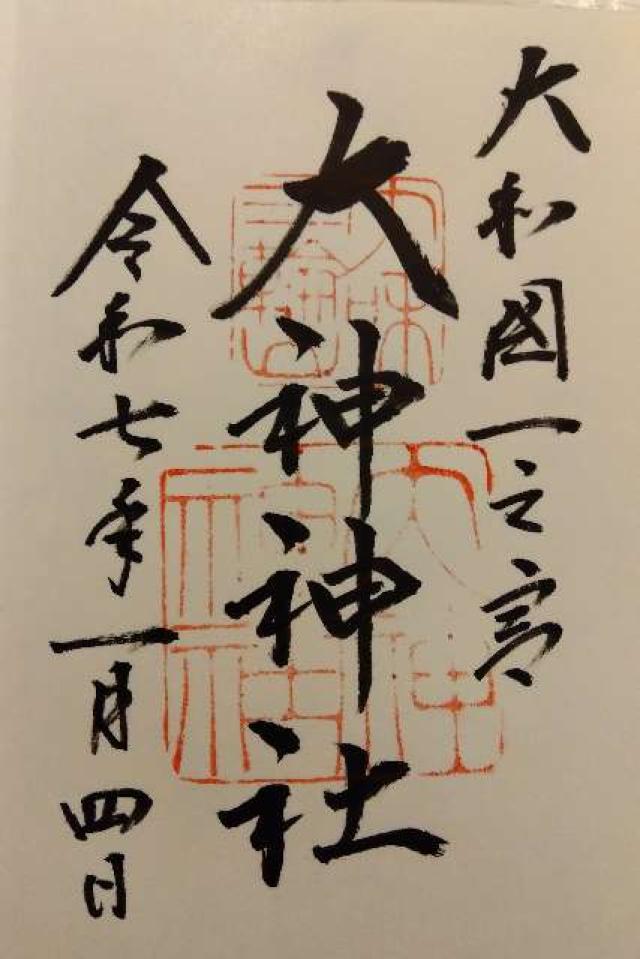 大和國一之宮
大神神社
令和七年一月四日